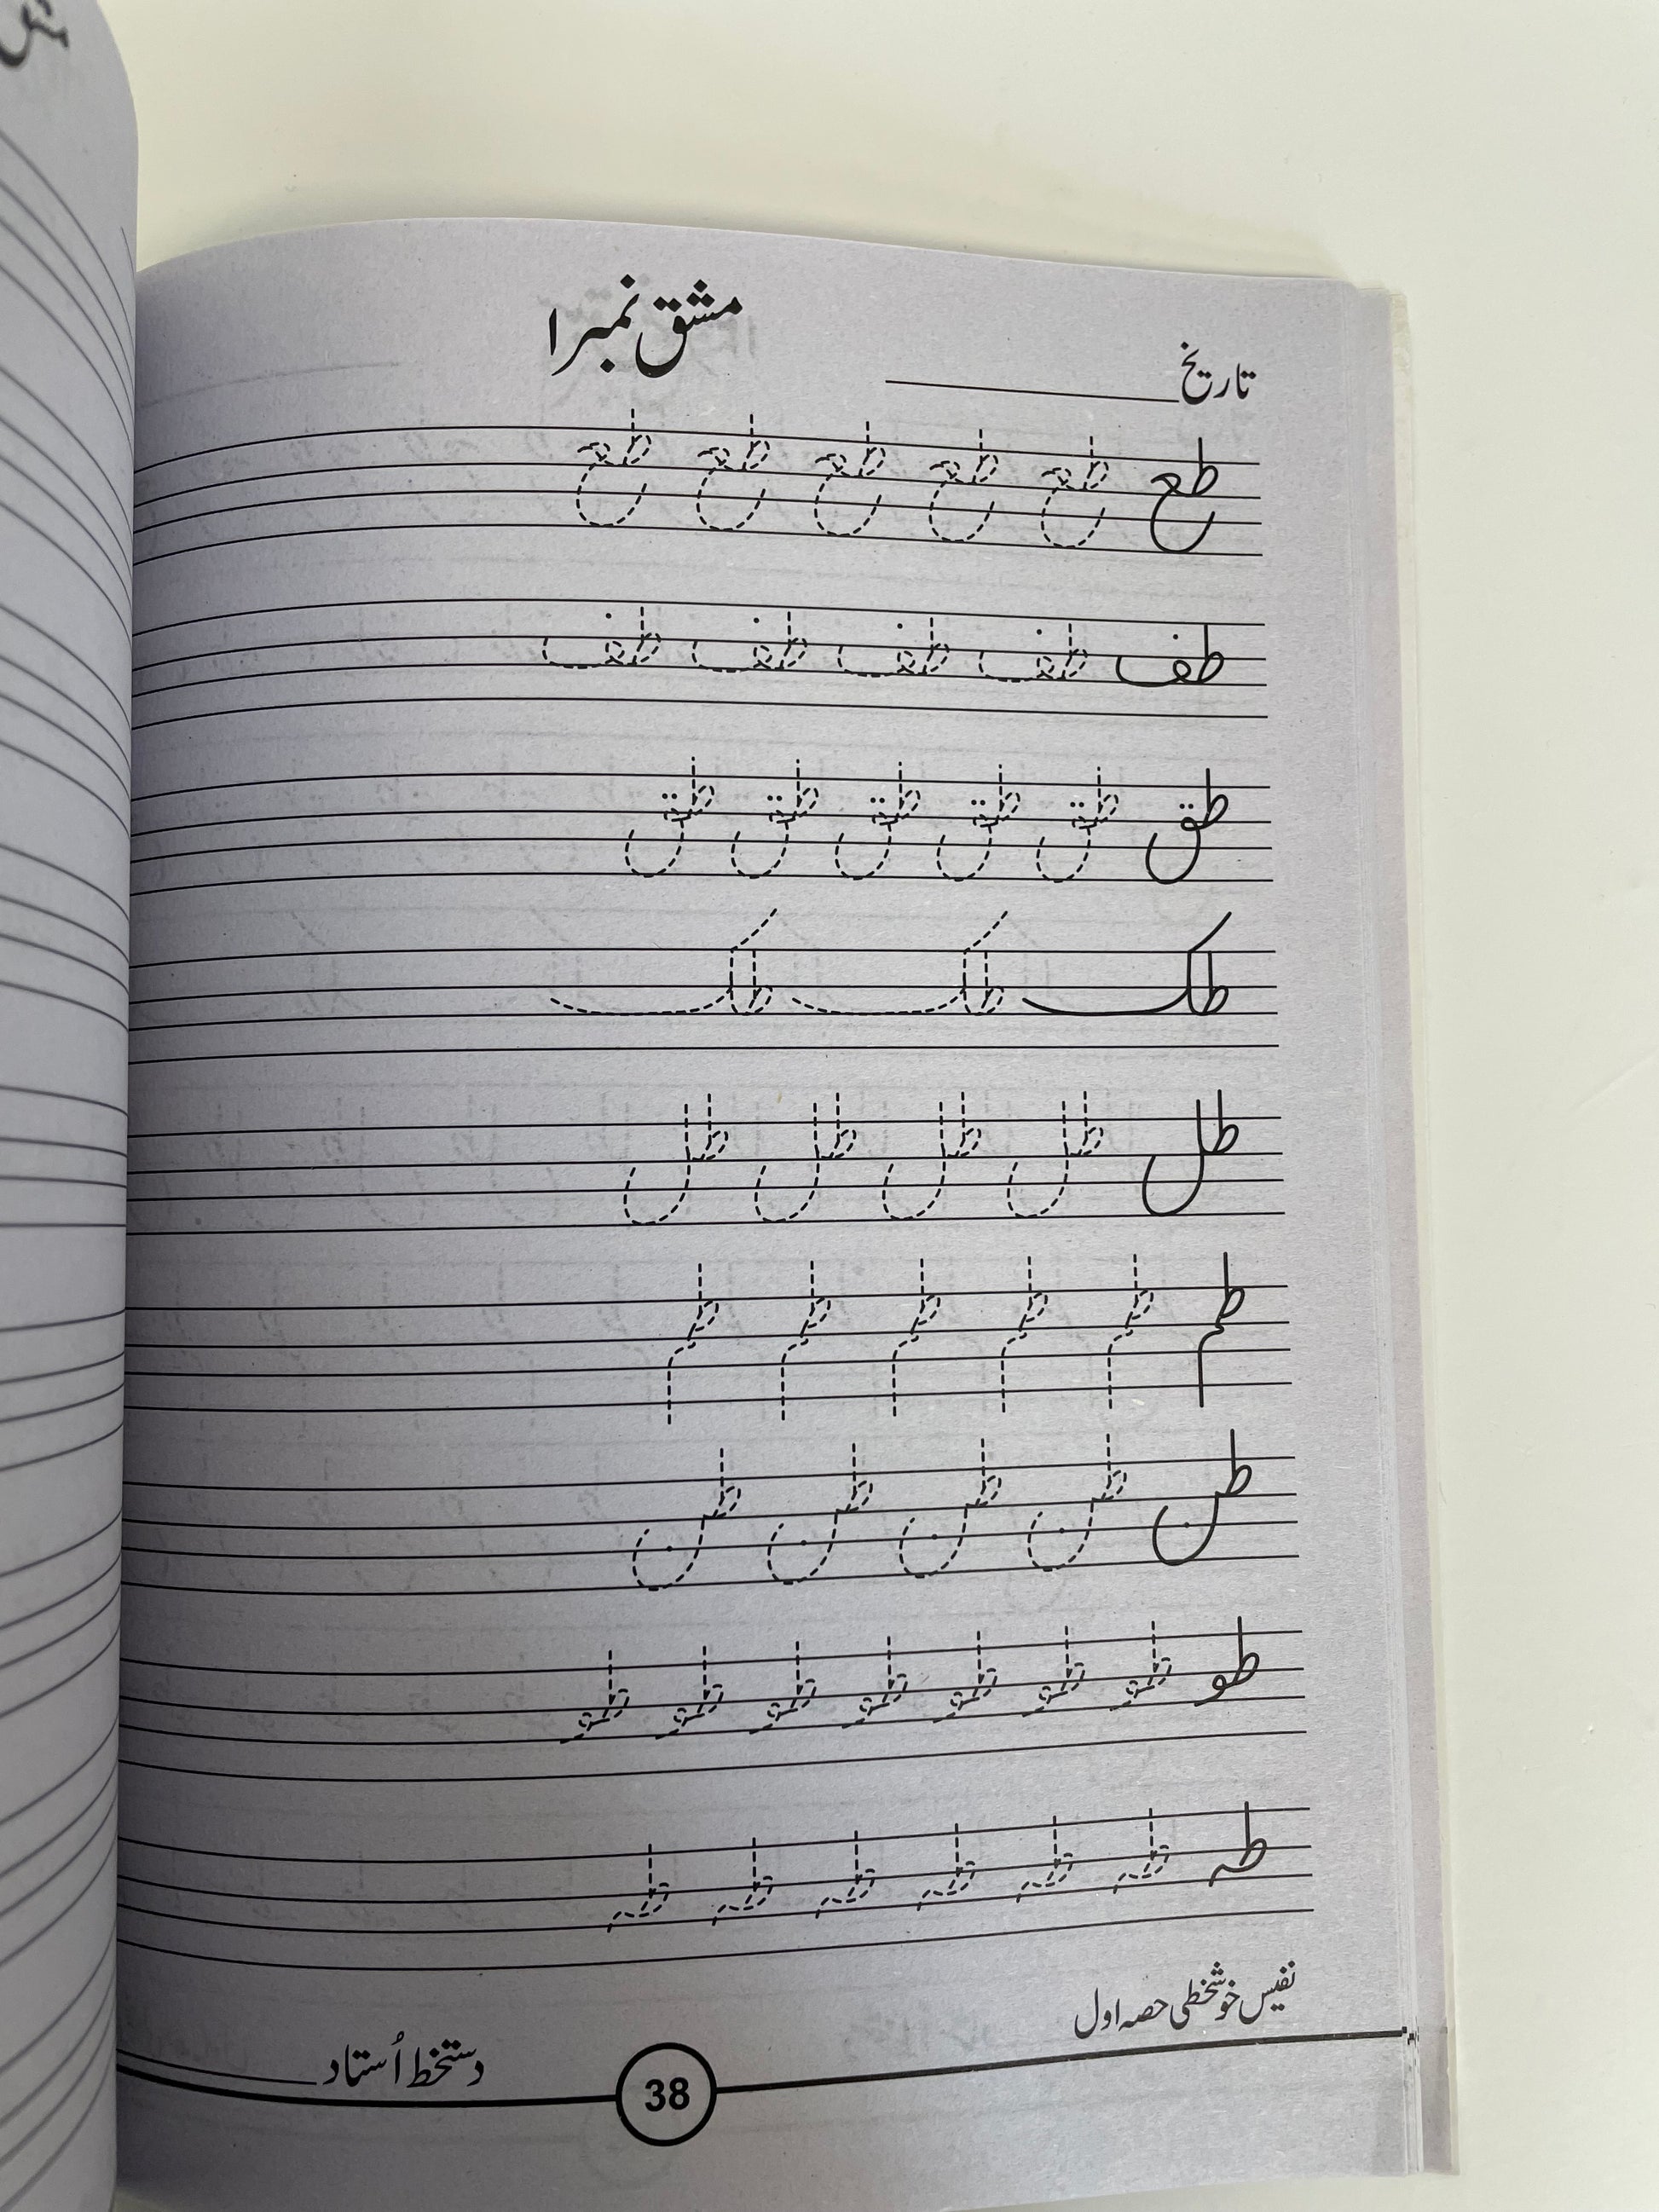 مشق نمبر ۱
تاریخ
طع طع طع طع طع طع
طف طف طف طف طف
طق طق طق طق طق طق
طک طک طک
طل طل طل طل طل
طم طم طم طم طم طم
طن طن طن طن طن
طو طو طو طو طو طو طو طو
طہ طہ طہ طہ طہ طہ طہ
نفیس خوشخطی حصہ اول
38
دستخط اُستاد